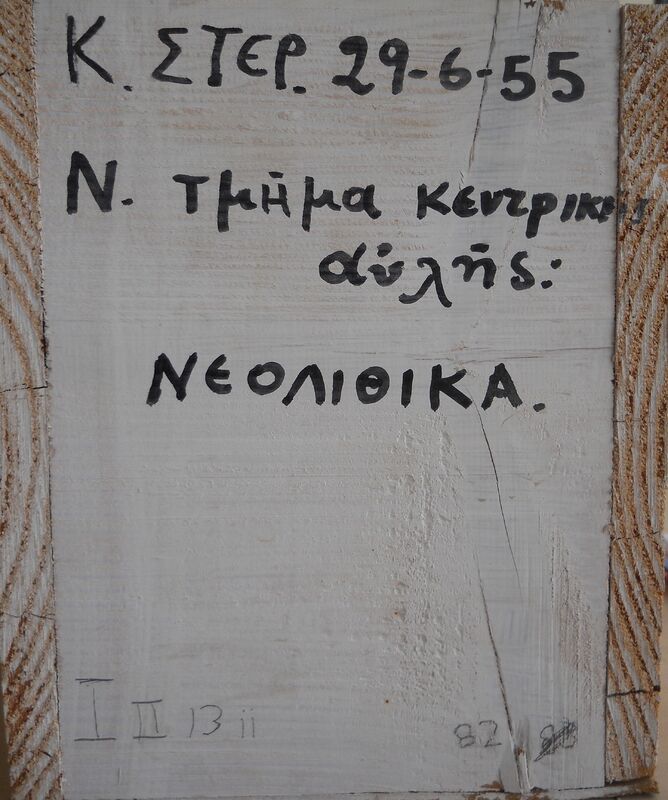 Κ. ΣΤΕΡ. 29-6-55
Ν. τμῆμα κεντρικῆς
αὐλῆς:
ΝΕΟΛΙΘΙΚΑ.
I II 13 ii 82